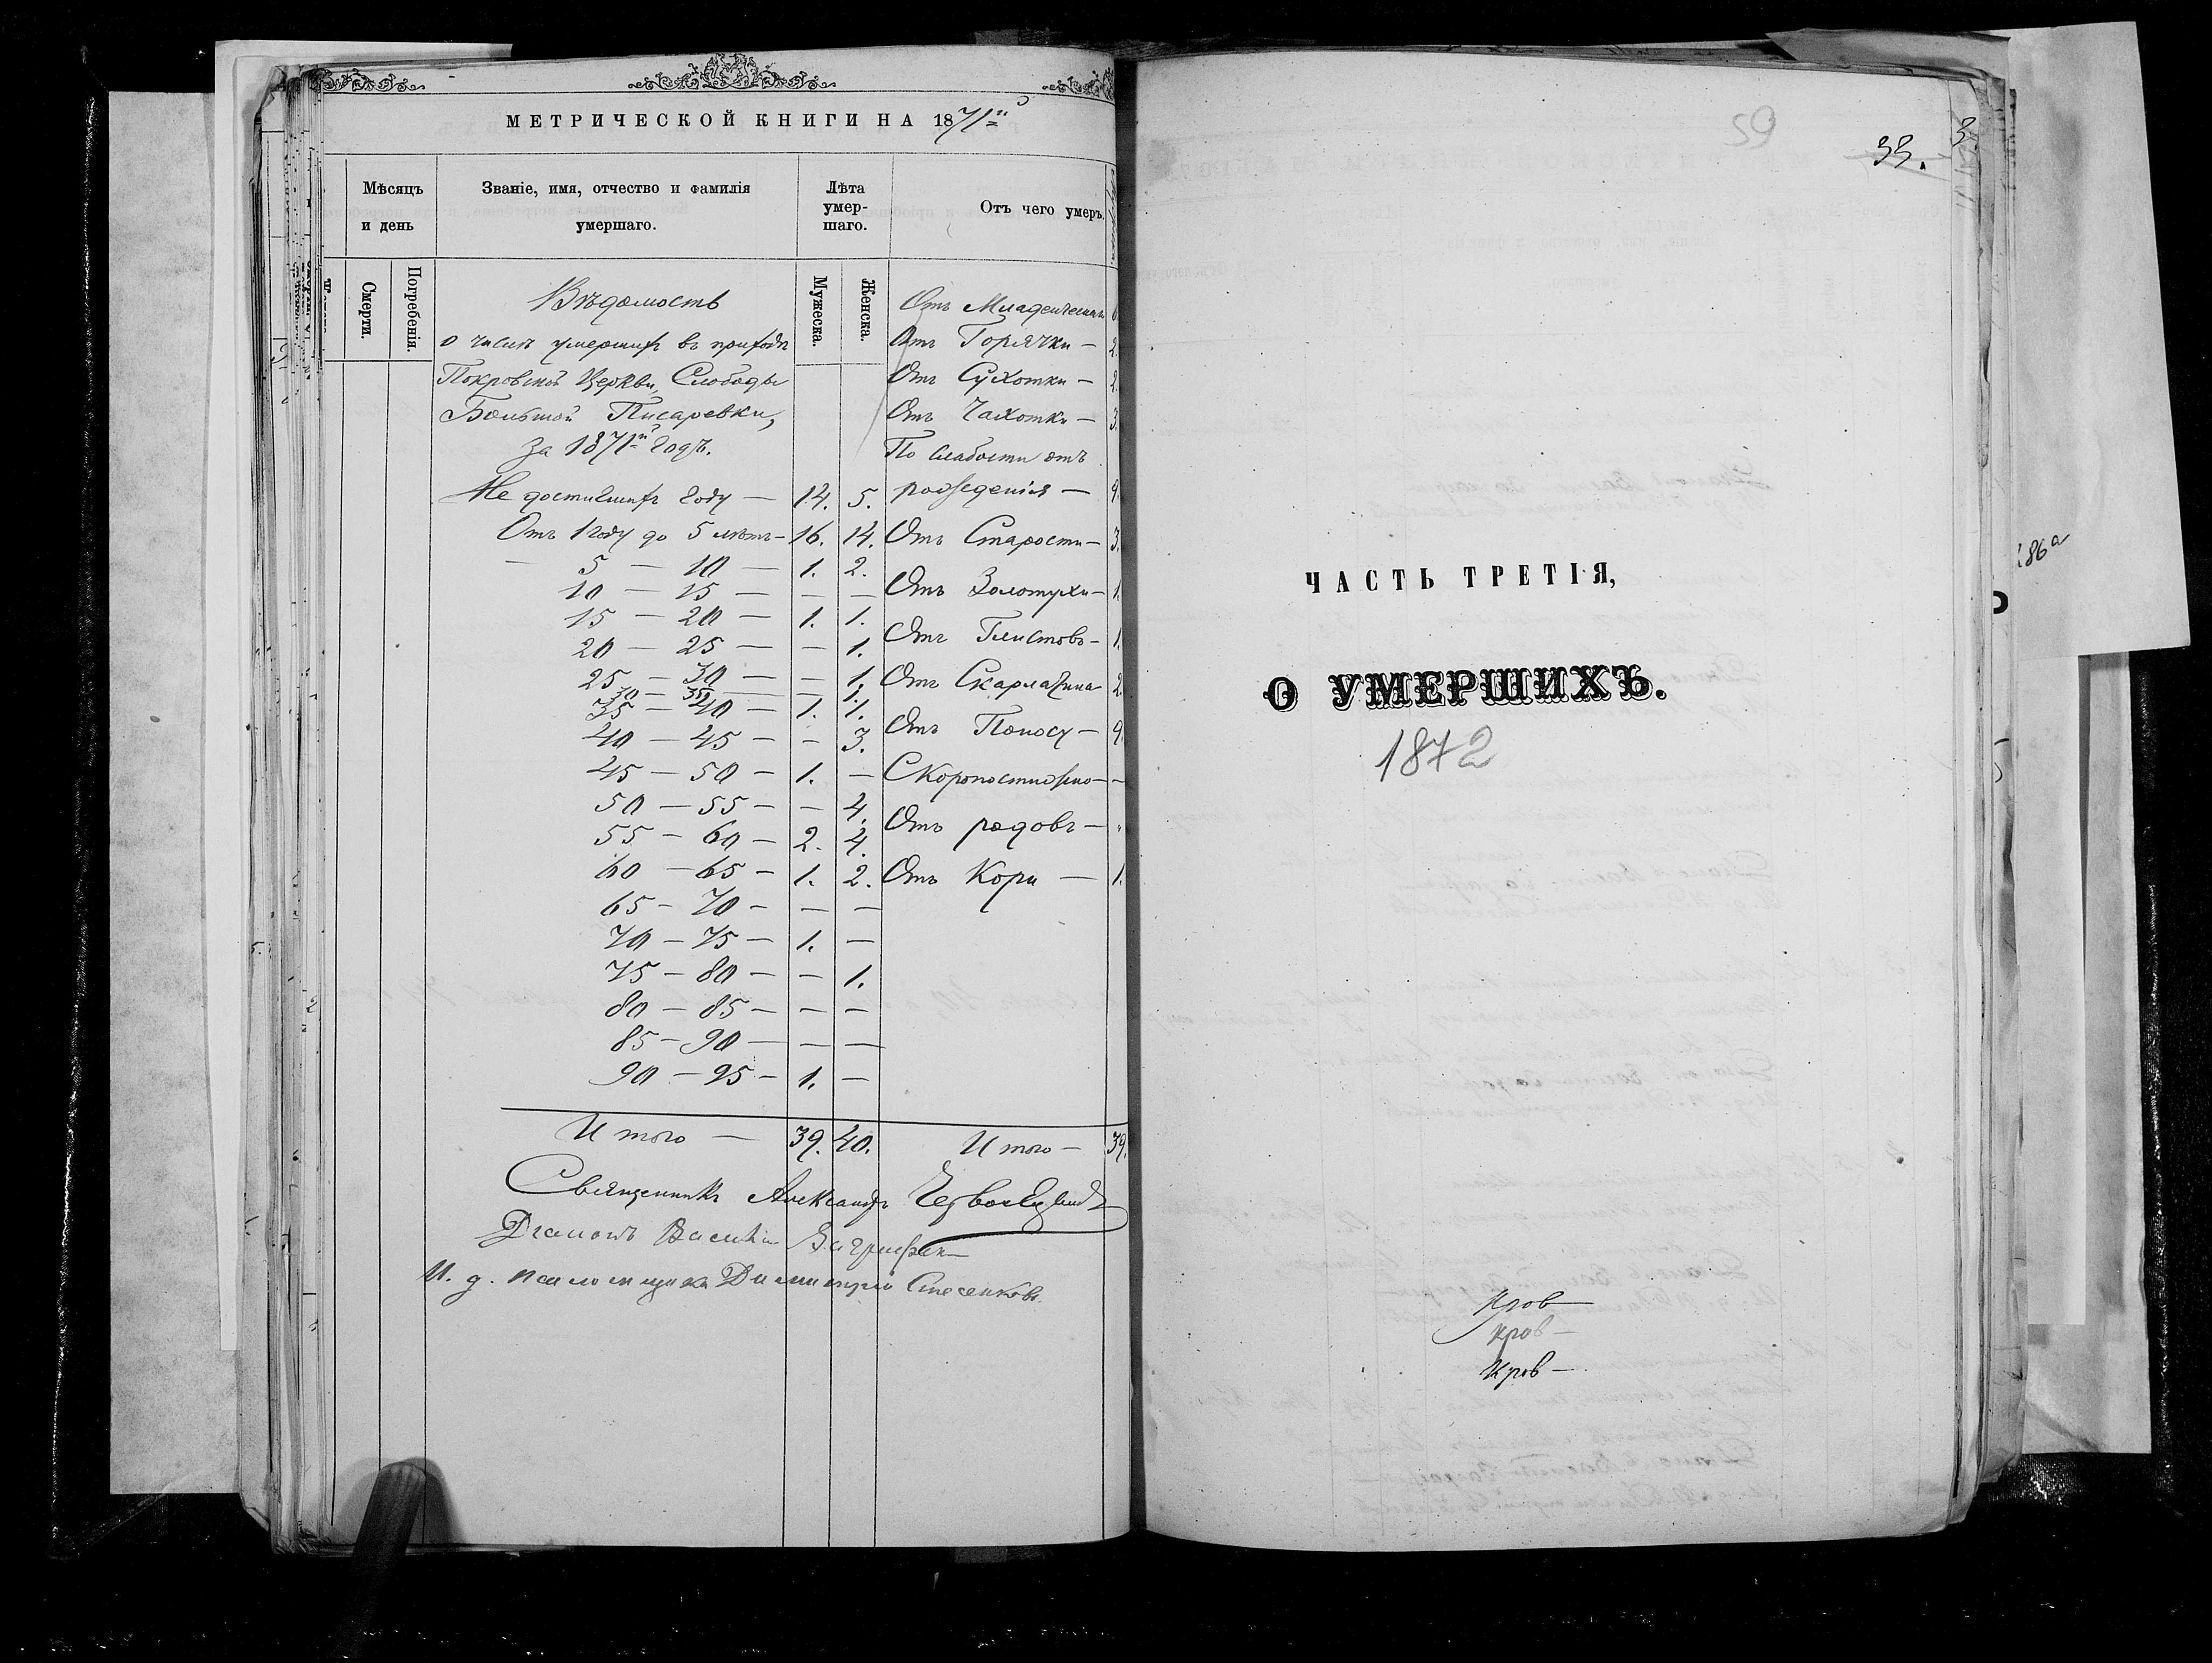 МЕТРИЧЕСКОЙ КНИГИ НА 1871й
Мѣсяцъ и день
Званіе, имя, отчество и фамилія умершаго.
Лѣта умер-шаго.
Отъ чего умеръ.
Смерти.
Погребенія.
Мужеска.
Женска.
Вѣдомость
о числѣ умершихъ въ приходѣ
Покровской Церкви, Слободы
Большой Писаревки,
за 1871й годъ.
Не достигшихъ году — 14. 5.
Отъ 1 году до 5 лѣтъ — 16. 14.
— 5 — 10 — 1. 2.
10 — 15 — — —
15 — 20 — 1. 1.
20 — 25 — — 1.
25 — 30 — — 1.
30 — 35 — — 1.
35 — 40 — 1. 1.
40 — 45 — — 3.
45 — 50 — 1. —
50 — 55 — — 4.
55 — 60 — 2. 4.
60 — 65 — 1. 2.
65 — 70 — — —
70 — 75 — 1. —
75 — 80 — — 1.
80 — 85 — — —
85 — 90 — — —
90 — 95 — 1. —
Итого — 39. 40.
Отъ
Отъ Горячки — 2.
Отъ Сухотки — 2.
Отъ Чахотки — 3.
По слабости отъ
рожденія — 9.
Отъ Старости — 3.
Отъ Золотухи — 1.
Отъ Глистовъ — 1.
Отъ Скарлатина 2.
Отъ Поносу — 9.
Скоропостижно — —
Отъ родовъ —
Отъ Кори — 1.
Итого — 39.
Священникъ Александръ
Діаконъ Василій
И. д. псаломщика Димитрій
33.
59
ЧАСТЬ ТРЕТІЯ,
О УМЕРШИХЪ.
1872
Кров—
кров—
Кров—
186а